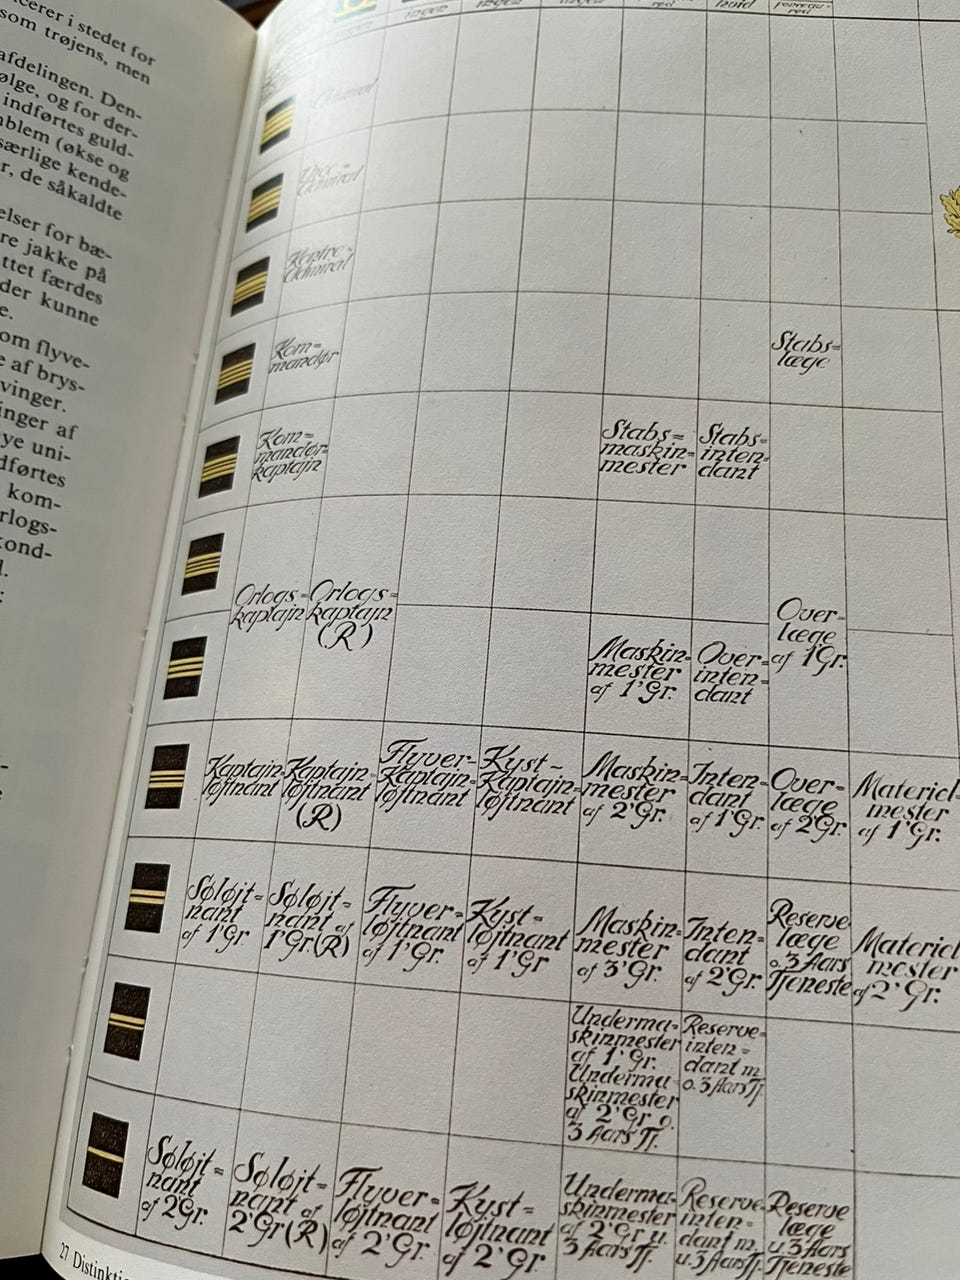 cerer i stedet for
som trøjens, men
afdelingen. Den-
ølge, og for der-
indførtes guld-
nblem (økse og
særlige kende-
er, de såkaldte
elser for bæ-
re jakke på
ttet færdes
der kunne
e.
om flyve-
e af brys-
vinger.
inger af
ye uni-
dførtes
kom-
rlogs-
ond-
l.
ingen
ingen
ingen
rød
hvid
rød
Admiral
Vice=
Admiral
Kontre=
Admiral
Kom=
mandør
Stabs=
læge
Kom=
mandør=
kaptajn
Stabs=
maskin=
mester
Stabs=
inten=
dant
Orlogs=
kaptajn
Orlogs=
kaptajn
(R)
Over-
læge
af 1'Gr.
Maskin=
mester
af 1'Gr.
Over=
inten=
dant
Kaptajn=
løjtnant
Kaptajn=
løjtnant
(R)
Flyver-
kaptajn-
løjtnant
Kyst-
kaptajn-
løjtnant
Maskin=
mester
af 2'Gr.
Inten=
dant
af 1'Gr.
Over-
læge
af 2'Gr.
Materiel-
mester
af 1'Gr.
Søløjt=
nant
af 1'Gr
Søløjt=
nant af
1'Gr(R)
Flyver=
løjtnant
af 1'Gr.
Kyst=
løjtnant
af 1'Gr
Maskin=
mester
af 3'Gr.
Inten=
dant
af 2'Gr.
Reserve
læge
o. 3 Aars
Tjeneste
Materiel
mester
af 2'Gr.
Underma=
skinmester
af 1'Gr.
Underma=
skinmester
af 2'Gr o.
3 Aars Tj.
Reserve=
inten=
dant m.
o. 3 Aars Tj.
Søløjt=
nant
af 2Gr.
Søløjt=
nant af
2'Gr(R)
Flyver=
løjtnant
af 2'Gr.
Kyst=
løjtnant
af 2'Gr
Underma=
skinmester
af 2'Gr u.
3 Aars Tj.
Reserve
inten=
dant m.
u. 3 Aars Tj.
Reserve
læge
u. 3 Aars
Tjeneste
27 Distinkti